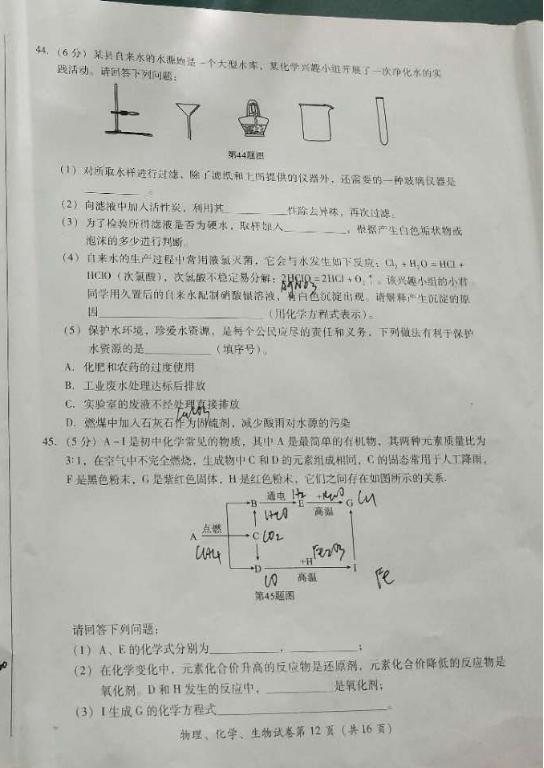 44.（6分）某县自来水的水源地是一个大型水库，某化学兴趣小组开展了一次净化水的实
践活动。请回答下列问题：
第44题图
（1）对所取水样进行过滤，除了滤纸和上图提供的仪器外，还需要的一种玻璃仪器是
。
（2）向滤液中加入活性炭，利用其 性除去异味，再次过滤。
（3）为了检验所得滤液是否为硬水，取样加入 ，根据产生白色垢状物或
泡沫的多少进行判断。
（4）自来水的生产过程中常用液氯灭菌，它会与水发生如下反应：Cl₂ + H₂O = HCl +
HClO（次氯酸），次氯酸不稳定易分解：2HClO = 2HCl + O₂↑。该兴趣小组的小君
AgNO3
同学用久置后的自来水配制硝酸银溶液，有白色沉淀出现。请解释产生沉淀的原
因 （用化学方程式表示）。
（5）保护水环境，珍爱水资源，是每个公民应尽的责任和义务。下列做法有利于保护
水资源的是 （填序号）。
A. 化肥和农药的过度使用
B. 工业废水处理达标后排放
C. 实验室的废液不经处理直接排放
CaCO3
D. 燃煤中加入石灰石作为固硫剂，减少酸雨对水源的污染
45.（5分）A－I是初中化学常见的物质，其中A是最简单的有机物，其两种元素质量比为
3:1，在空气中不完全燃烧，生成物中C和D的元素组成相同，C的固态常用于人工降雨，
F是黑色粉末，G是紫红色固体，H是红色粉末，它们之间存在如图所示的关系.
B 通电 H2 E 高温 G Cu
H2O
A 点燃 C CO2
CH4
D +H 高温 I Fe2O3
CO Fe
第45题图
请回答下列问题：
（1）A、E的化学式分别为 ， ；
（2）在化学变化中，元素化合价升高的反应物是还原剂，元素化合价降低的反应物是
氧化剂。D和H发生的反应中， 是氧化剂；
（3）I生成G的化学方程式
物理、化学、生物试卷第12页（共16页）